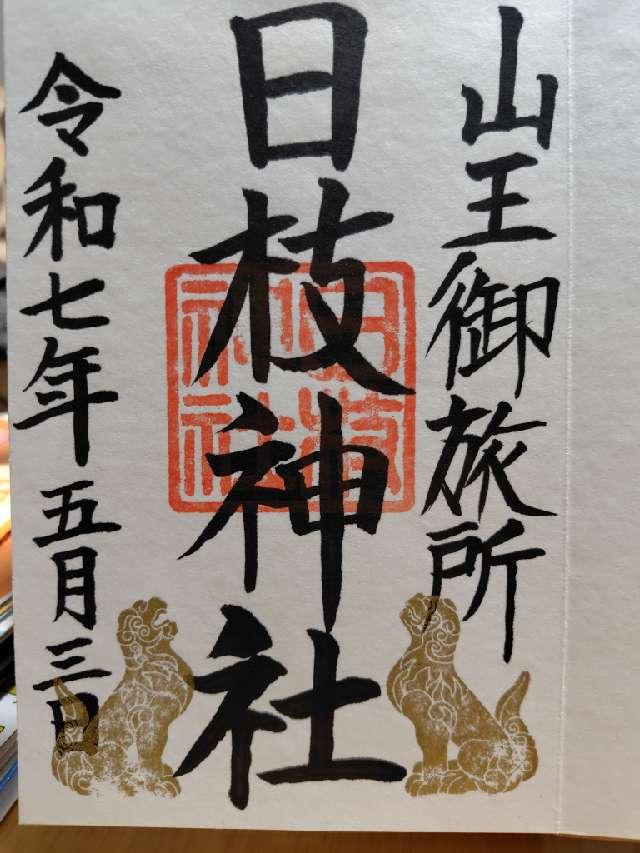 山王御旅所
日枝神社
日枝神社
令和七年五月三日